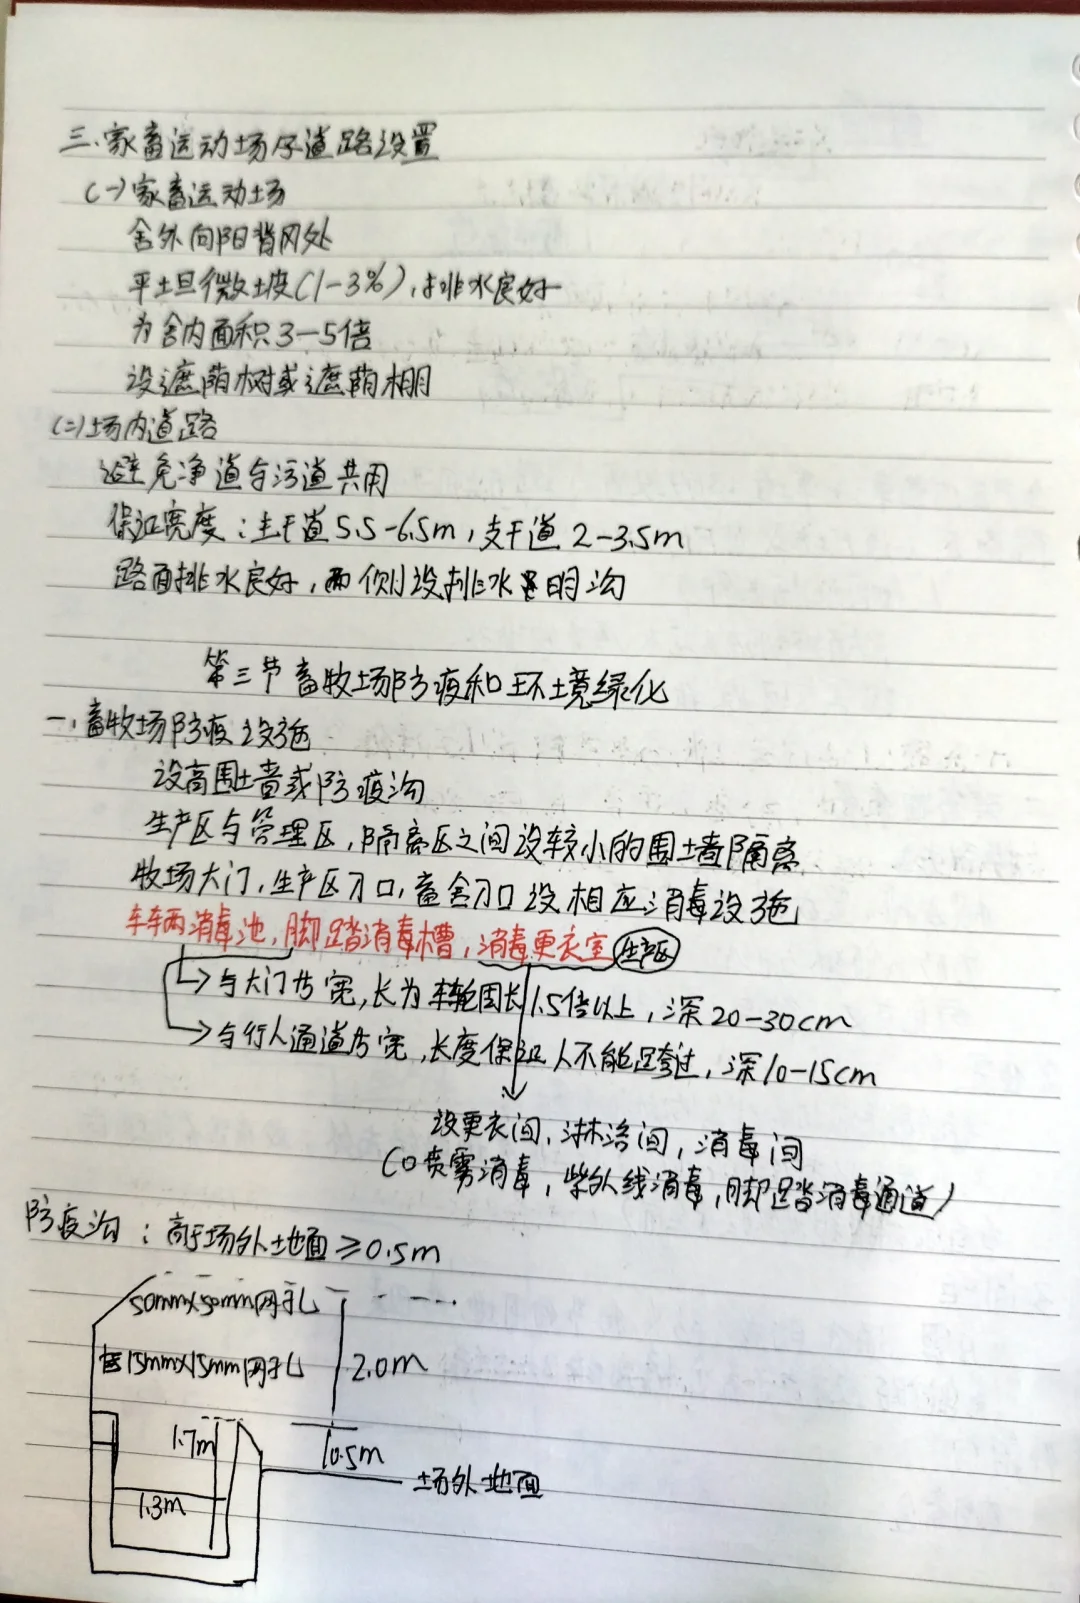 三、家畜运动场与道路设置
(一)家畜运动场
舍外向阳背风处
平坦微坡(1-3%),排水良好
为舍内面积3-5倍
设遮荫树或遮荫棚
(二)场内道路
避免净道与污道共用
保证宽度:主干道5.5-6.5m,支干道2-3.5m
路面排水良好,两侧设排水明沟
第三节 畜牧场防疫和环境绿化
一、畜牧场防疫设施
设高围墙或防疫沟
生产区与管理区,隔离区之间设较小的围墙隔离
牧场大门,生产区入口,畜舍入口设相应消毒设施
车辆消毒池,脚踏消毒槽,消毒更衣室 生产区
与大门等宽,长为车轮周长1.5倍以上,深20-30cm
与行人通道等宽,长度保证人不能跨过,深10-15cm
设更衣间,淋浴间,消毒间
(喷雾消毒,紫外线消毒,脚踏消毒通道)
防疫沟:高于场外地面≥0.5m
50mmx50mm网孔
15mmx15mm网孔
2.0m
1.7m
0.5m
场外地面
1.3m